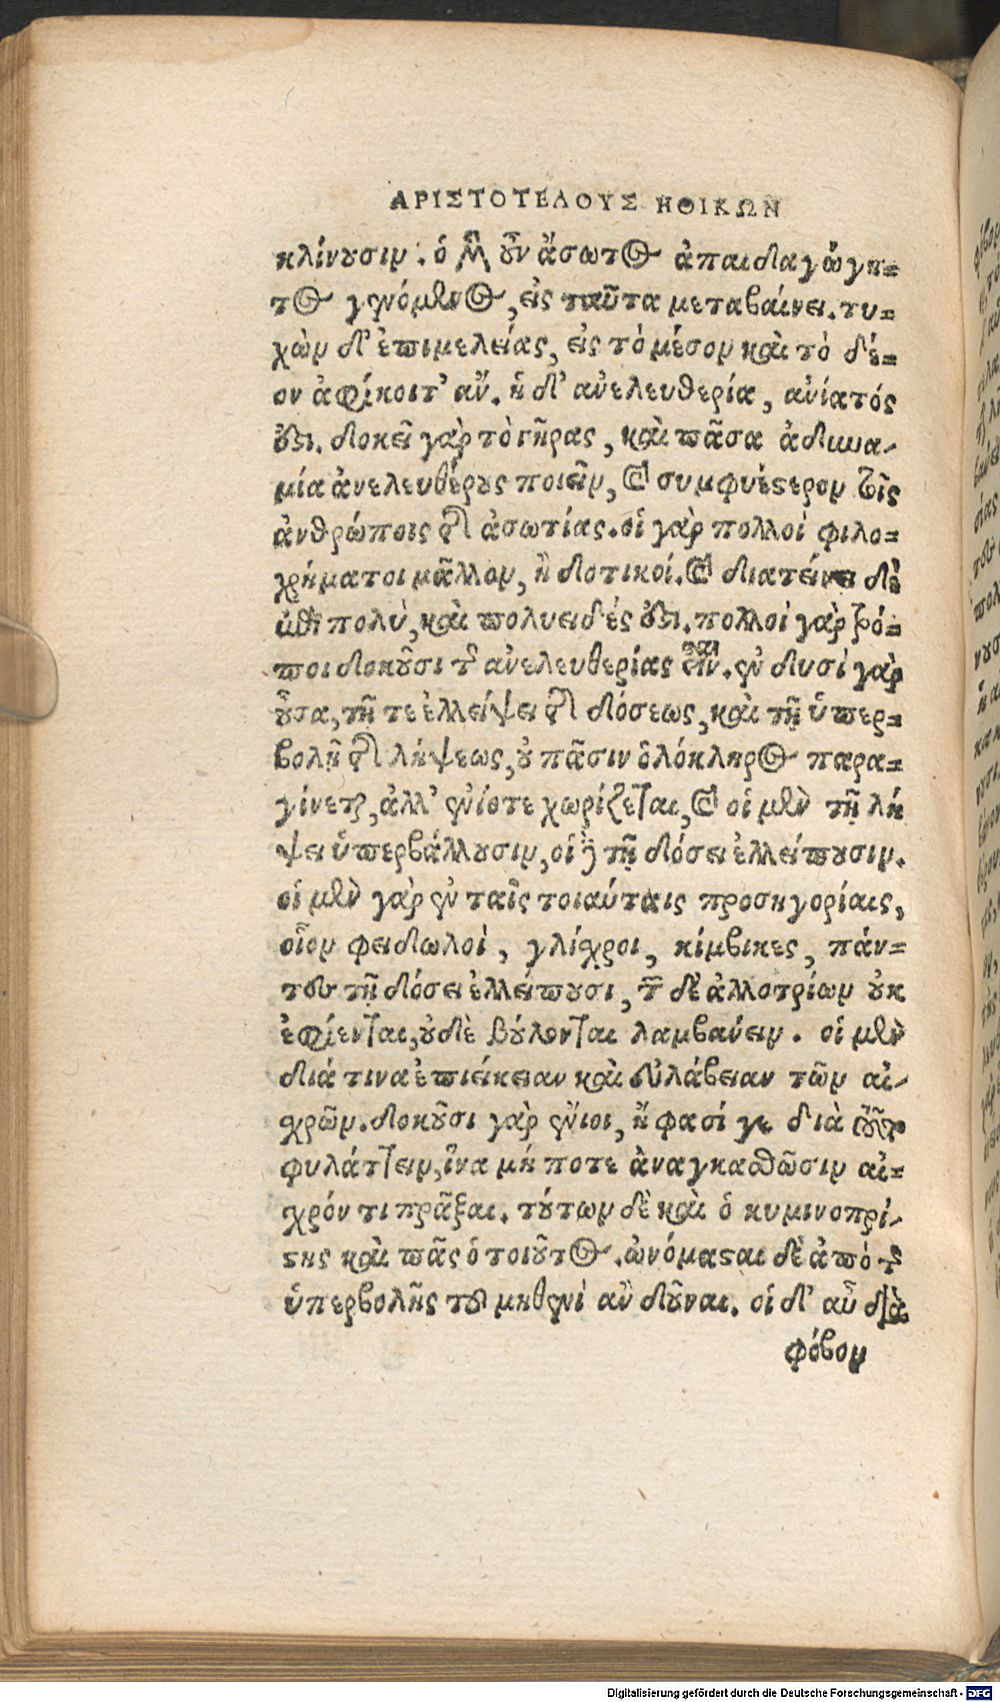 ΑΡΙΣΤΟΤΕΛΟΥΣ ΗΘΙΚΩΝ
κλίνουσιν. ὁ μὲν οὖν ἄσωτος ἀπαιδαγώγη=
τος γινόμενος, εἰς ταῦτα μεταβαίνει. τυ=
χὼν δ' ἐπιμελείας, εἰς τὸ μέσον καὶ τὸ δέ=
ον ἀφίκοιτ' ἄν. ἡ δ' ἀνελευθερία, ἀνίατός
ἐστι. δοκεῖ γὰρ τὸ γῆρας, καὶ πᾶσα ἀδυνα-
μία ἀνελευθέρους ποιεῖν, καὶ συμφυέστερον τοῖς
ἀνθρώποις τῆς ἀσωτίας. οἱ γὰρ πολλοὶ φιλο=
χρήματοι μᾶλλον, ἢ δοτικοί. καὶ διατείνει δὲ
ἐπὶ πολὺ, καὶ πολυειδές ἐστι. πολλοὶ γὰρ τρό=
ποι δοκοῦσι τῆς ἀνελευθερίας εἶναι. ἐν δυσὶ γὰρ
οὖσα, τῇ τε ἐλλείψει τῆς δόσεως, καὶ τῇ ὑπερ=
βολῇ τῆς λήψεως, οὐ πᾶσιν ὁλόκληρος παρα=
γίνεται, ἀλλ' ἐνίοτε χωρίζεται, καὶ οἱ μὲν τῇ λή
ψει ὑπερβάλλουσιν, οἱ δὲ τῇ δόσει ἐλλείπουσιν.
οἱ μὲν γὰρ ἐν ταῖς τοιαύταις προσηγορίαις,
οἷον φειδωλοὶ, γλίσχροι, κίμβικες, πάν=
τες τῇ δόσει ἐλλείπουσι, τῶν δὲ ἀλλοτρίων οὐκ
ἐφίενται, οὐδὲ βούλονται λαμβάνειν. οἱ μὲν
διά τινα ἐπιείκειαν καὶ εὐλάβειαν τῶν αἰ-
σχρῶν. δοκοῦσι γὰρ ἔνιοι, ἤ φασί γε διὰ τοῦτο
φυλάττειν, ἵνα μή ποτε ἀναγκασθῶσιν αἰ=
σχρόν τι πρᾶξαι. τούτων δὲ καὶ ὁ κυμινοπρί-
στης καὶ πᾶς ὁ τοιοῦτος. ὠνόμασται δὲ ἀπὸ τῆς
ὑπερβολῆς τοῦ μηθενὶ ἂν δοῦναι. οἱ δ' αὖ διὰ
φόβον
Digitalisierung gefördert durch die Deutsche Forschungsgemeinschaft - DFG